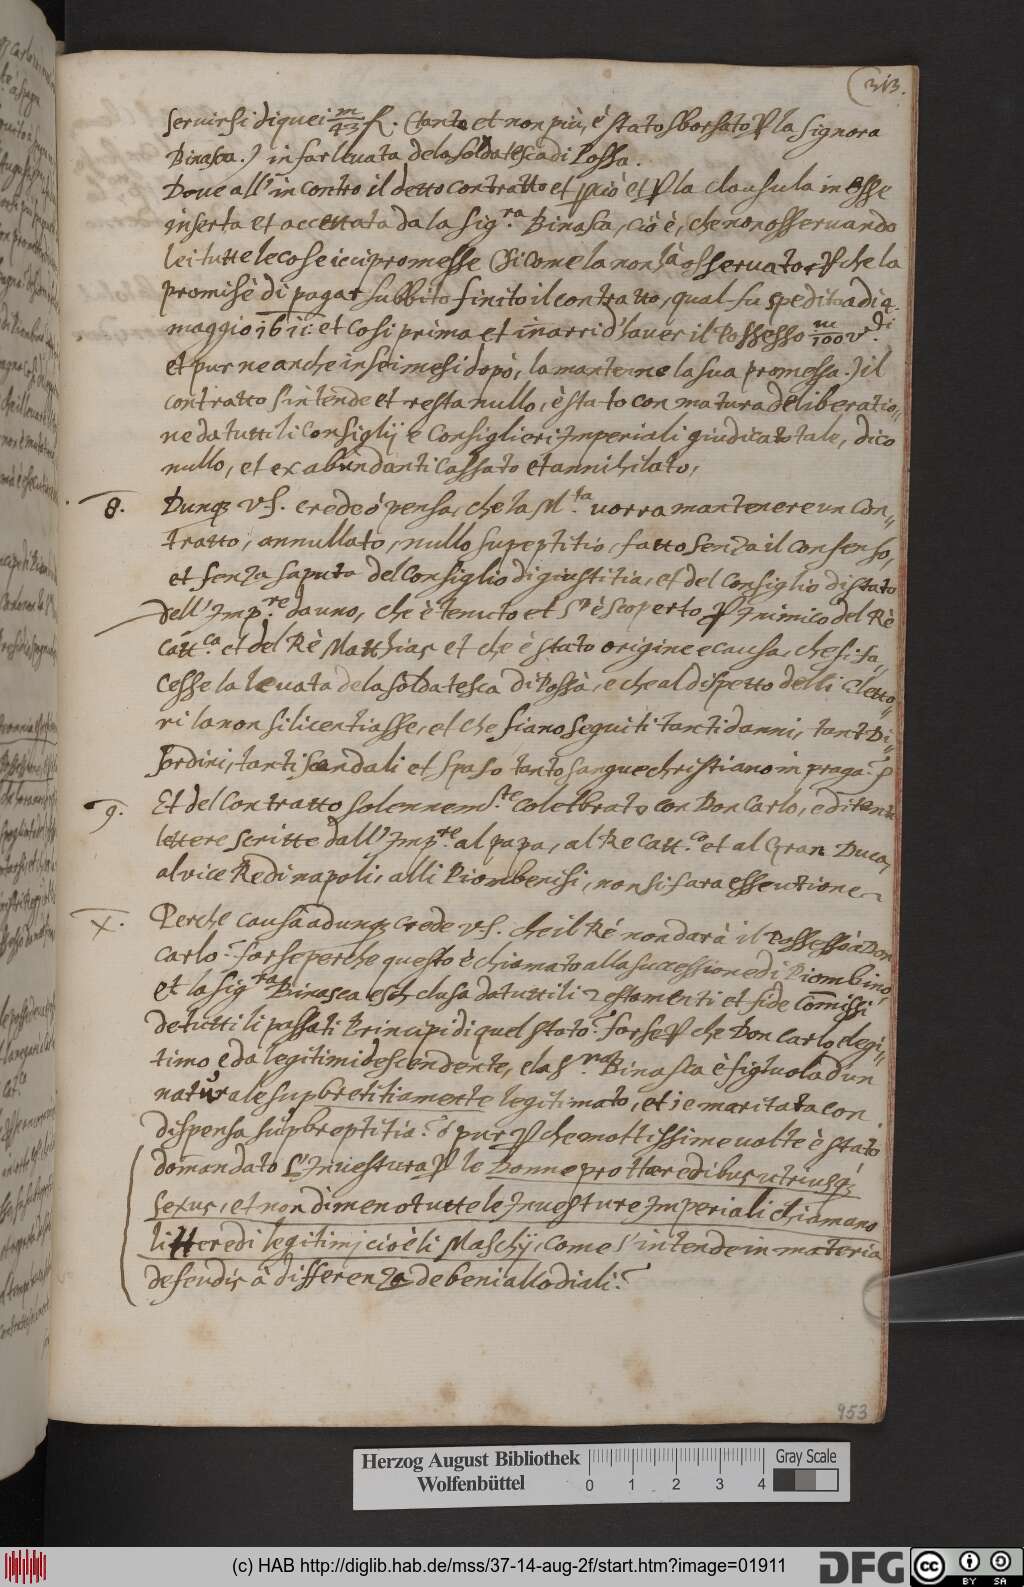 313.
servirsi di quei m/43 fl. (tanto et non più, è stato sborsato per la signora
Binasca.) in far levata de la soldatesca di Possa.
Dove all' incontro il detto contratto et perciò et per la clausula in esse
inserta et accettata da la sig.ra Binasca, ciò è, che non osservando
lei tutte le cose ieci promesse (si come la non hà osservato per che la
promise di pagar subbito finito il contratto, qual fu spedito adi 4.
maggio 1611: et cosi prima et inanzi d'haver il Possesso m/100 v.di
et pur ne anche in sei mesi dopò, la mantenne la sua promessa.) il
contratto s'intende et resta nullo, è stato con matura deliberatio„
ne da tutti li Consiglij e Consiglieri Imperiali giudicato tale, dico
nullo, et ex abundanti cassato et annihilato,
8. Dunq; v.S. crede ó pensa, che la M.ta vorra mantenere un con„
tratto, annullato, nullo supeptitio, fatto senza il consenso,
et senza saputa del Consiglio di giustitia, et del Consiglio di stato
dell' Imp.re da uno, che è tenuto et s'è scoperto per Inimico del Rè
Catt.co et del Rè Matthias et che è stato origine e causa, che si fa„
cesse la levata de la soldatesca di Possa, e che al dispetto delli Eletto„
ri la non si licentiasse, et che siano seguiti tanti danni, tanti Di„
sordini, tanti scandali et spaso tanto sangue christiano in praga?
9. Et del Contratto solennem.te celebrato con Don Carlo, e di tante
lettere scritte dall' Imp.re al papa, al Re Catt.co et al Gran Duca,
al vice Re di napoli, alli Piombenisi, non si fara essecutione
X. Perche causa adunq; crede v.S. che il Ré non darà il Possesso à Don
Carlo? forse perche questo è chiamato alla successione di Piombino,
et la sig.ra Binasca esch clusa da tutti li Testamenti et fide Commissi
de tutti li passati Principi di quel stato? forse per che Don Carlo è legi„
timo e da legitimi descendente, e la S.ra Binasca è figluola d'un
naturale supbretitiamente legitimato, et ie maritata con
dispensa supbreptitia? ó pur per che moltissime volte è stato
domandato l'Investura per le Donne pro Haeredibus utriusq;
sexus, et non dimeno tutte le Investure Imperiali chiamano
li Heredi legitimj cioè li Maschij, come s'intende in materia
defendis à differenza de beni allodiali?
953
Herzog August Bibliothek
Wolfenbüttel
0 1 2 3 4
Gray Scale
(c) HAB http://diglib.hab.de/mss/37-14-aug-2f/start.htm?image=01911
DFG
cc BY SA